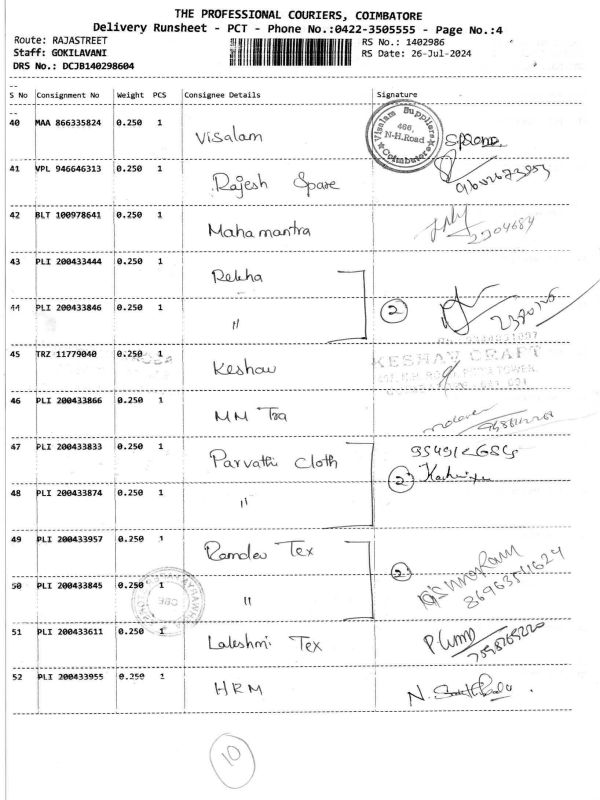 THE PROFESSIONAL COURIERS, COIMBATORE
Delivery Runsheet - PCT - Phone No.:0422-3505555 - Page No.:4
Route: RAJASTREET RS No.: 1402986
Staff: GOKILAVANI RS Date: 26-Jul-2024
DRS No.: DCJB140298604
--
S No Consignment No Weight PCS Consignee Details Signature
--
40 MAA 866335824 0.250 1 Visalam
Visalam Suppliers
466,
N-H.Road
Coimbatore
41 VPL 946646313 0.250 1 Rajesh Spare
42 BLT 100978641 0.250 1 Mahamantra
43 PLI 200433444 0.250 1 Rekha
44 PLI 200433846 0.250 1 "
2
45 TRZ 11779040 0.250 1 Keshav
KESHAV CRAFT
46 PLI 200433866 0.250 1 MM Tra
47 PLI 200433833 0.250 1 Parvathi Cloth
2
48 PLI 200433874 0.250 1 "
49 PLI 200433957 0.250 1 Ramdev Tex
2
8696354624
50 PLI 200433845 0.250 1 "
51 PLI 200433611 0.250 1 Lakshmi Tex
52 PLI 200433955 0.250 1 HRM
10